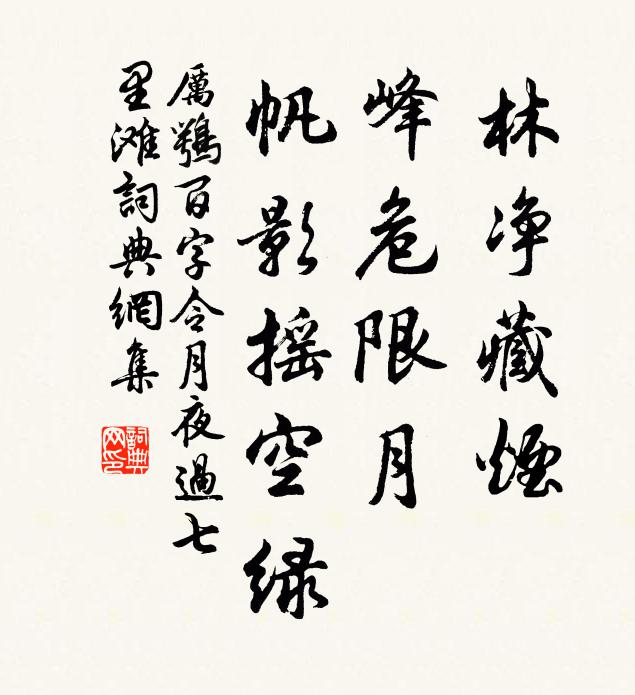 林净藏煙
峰危限月
帆影摇空绿
厲鶚百字令月夜過七
里滩詞典網集
詞典网印